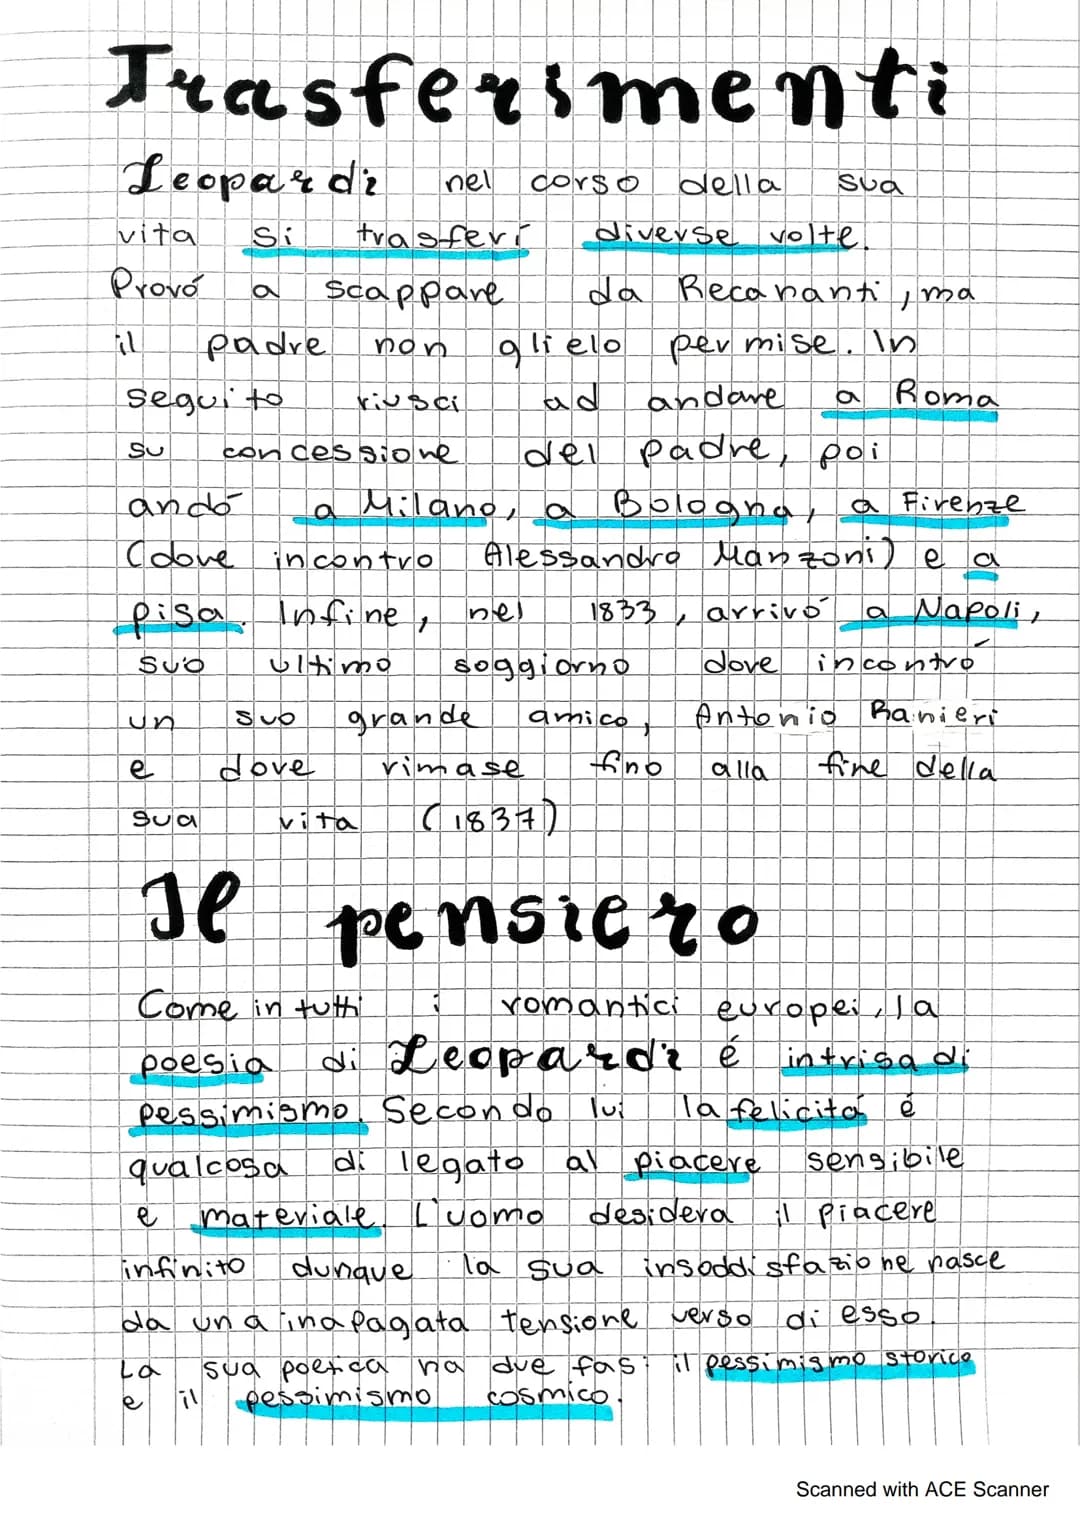 Trasferimenti
Leopardi nel corso della sua
vita si trasferí diverse volte.
Provó a scappare da Recananti, ma
il padre non glielo permise. In
seguito riusci ad andare a Roma
su concessione del padre, poi
andó a Milano, a Bologna, a Firenze
(dove incontro Alessandro Manzoni) e a
pisa. Infine, nel 1833, arrivó a Napoli,
suo ultimo soggiorno dove incontró
un suo grande amico, Antonio Ranieri
e dove rimase fino alla fine della
sua vita (1837)
Il pensiero
Come in tutti i romantici europei, la
poesia di Leopardi é intrisa di
pessimismo. Secondo lui la felicitá é
qualcosa di legato al piacere sensibile
e materiale. L'uomo desidera il piacere
infinito dunque la sua insoddisfazione nasce
da una inapagata tensione verso di esso.
La sua poetica ha due fasi il pessimismo storico
e il pessimismo cosmico.
Scanned with ACE Scanner